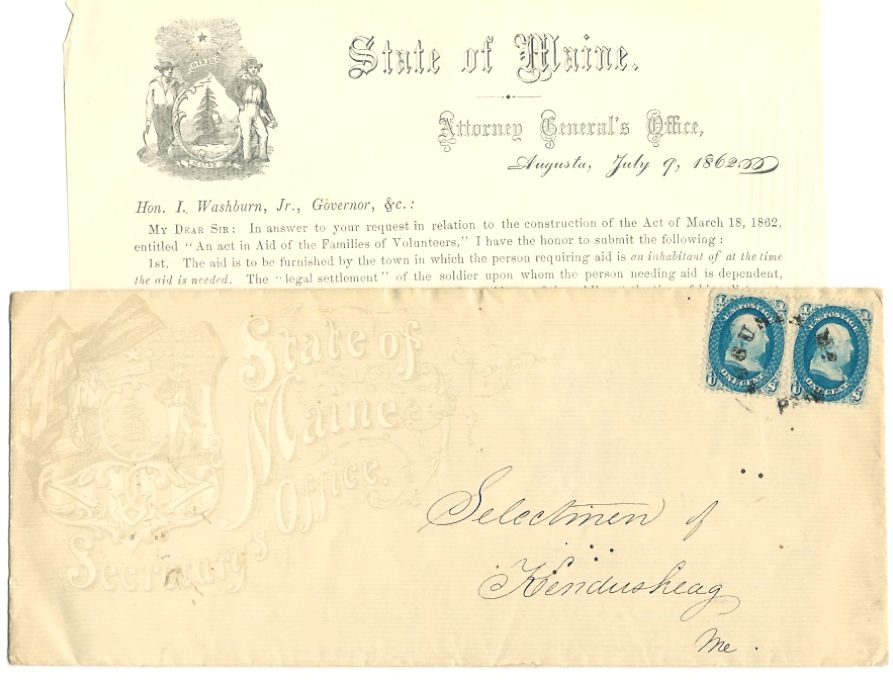 DIRIGO
State of Maine.
Attorney General's Office,
Augusta, July 9, 1862.
Hon. I. Washburn, Jr., Governor, &c.:
MY DEAR SIR: In answer to your request in relation to the construction of the Act of March 18, 1862,
entitled "An act in Aid of the Families of Volunteers," I have the honor to submit the following:
1st. The aid is to be furnished by the town in which the person requiring aid is an inhabitant of at the time
the aid is needed. The "legal settlement" of the soldier upon whom the person needing aid is dependent,
State of
Maine
Secretary's Office.
U.S. POSTAGE
ONE CENT
U.S. POSTAGE
ONE CENT
PAID
Selectmen of
Kenduskeag
Me.